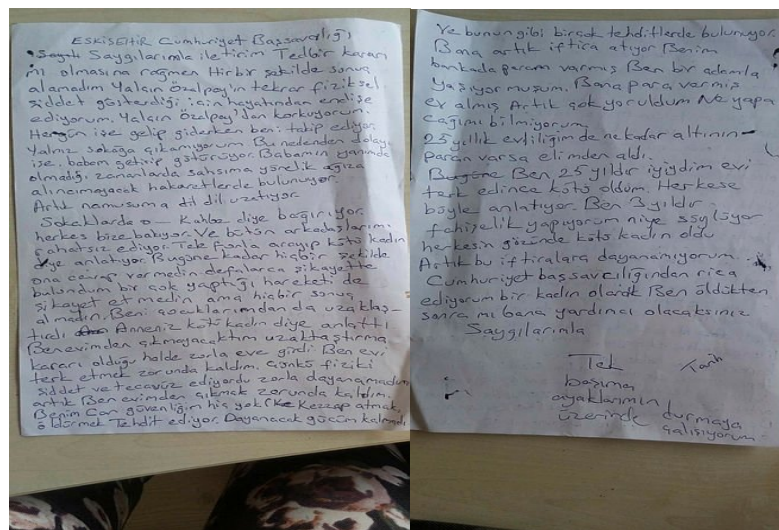 ESKİSEHİR Cumhuriyet Başsavcılığı
Saygılarımla iletirim Tedbir kararı
mı olmasına rağmen Hirbir şekilde sonuç
alamadım Yalçın Özalpay'ın tekrar fiziksel
şiddet gösterdiği için hayatımdan endişe
ediyorum. Yalçın Özalpay'dan korkuyorum.
Hergün işe gelip giderken beni takip ediyor.
Yalnız sokağa çıkamıyorum Bu nedenden dolayı
işe. babam getirip götürüyor. Babamın yanımda
olmadığı zamanlarda şahsıma yönelik ağıza
alıncımayacak hakaretlerde bulunuyor.
Artık namusuma dil dil uzatıyor.
Sokaklarda o— Kahbe diye bağırıyor.
herkes bize bakıyor. Ve bütün arkadaşlarımı
rahatsız ediyor. Tek fonla arayıp kötü kadın
diye anlatıyor. Bugüne kadar hiçbir şekilde
ona cevap vermedim defalarca şikayette
bulundum bir çok yaptığı hareketi de
şikayet etmedim ama hiçbir sonuç
almadım. Beni çocuklarımdan da uzaklaş—
tırdı Anneniz kötü kadın diye anlattı
Ben evimden çıkmayacaktım uzaklaştırma
kararı olduğu halde zorla eve girdi Ben evi
terk etmek zorunda kaldım. çünkü fiziki
şiddet ve tecavüz ediyordu zorla dayanamadım
artık Ben evimden çıkmak zorunda kaldım.
Benim Can güvenliğim hiç yok Kezzap atmak,
öldürmek Tehdit ediyor. Dayanacak gücüm kalmadı
Ve bunun gibi birçok tehditlerde bulunuyor.
Bana artık iftira atıyor Benim
bankada param varmış Ben bir adamla
yaşıyormuşum. Bana para vermiş
ev almış Artık çok yoruldum Ne yapa
cağımı bilmiyorum
25 yıllık evliliğimde nekadar altının—
param varsa elimden aldı.
Ben 25 yıldır iyiydim evi
terk edince kötü oldum. Herkese
böyle anlatıyor. Ben 3 yıldır
fahişelik yapıyorum niye söylüyor
herkesin gözünde kötü kadın oldu
Artık bu iftiralara dayanamıyorum..
Cumhuriyet başsavcılığından rica
ediyorum bir kadın olarak Ben öldükten
sonra mı bana yardımcı olacaksınız
Saygılarımla
Tek Tarih
başıma
ayaklarımın
üzerinde durmaya
çalışıyorum